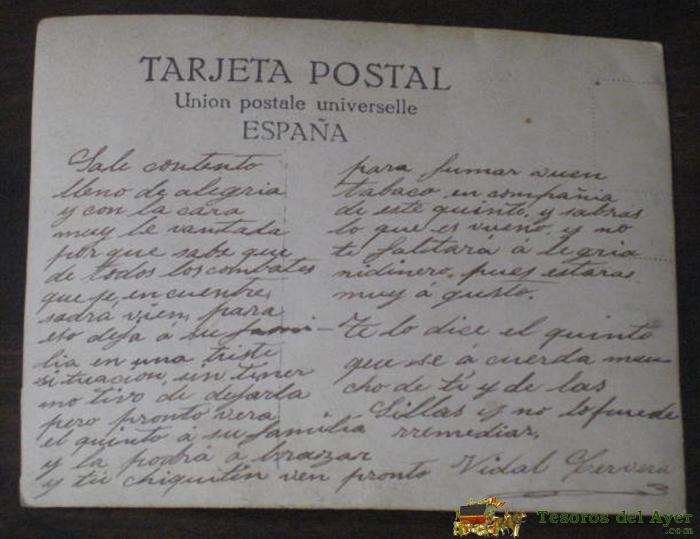 TARJETA POSTAL
Union postale universelle
ESPAÑA
Sale contento
lleno de alegria
y con la cara
muy le vantada
por que sabe que
de todos los combates
que se, encuentre,
sadra vien, para
eso deja á su fami-
lia en una triste
situación, sin tener
mo tivo de dejarla
pero pronto vera
el quinto á su família
y la podrá á brazar
y tu chiquitin ven pronto
para fumar vuen
tabaco, en compañia
de este quinto, y sabras
lo que es vueno, y no
te faltará á le gria
nidinero, pues estaras
muy á gusto.
Te lo dice el quinto
que se á cuerda mu
cho de tí y de las
Sillas y no lo puede
rremediar.
Vidal Cervera
Tesoros del Ayer
.com